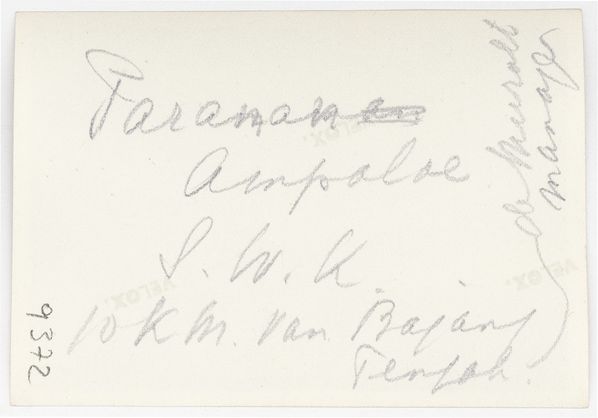 Taranan
Ampaloe
S. W. K.
10 K M. van Bajang
Tengah.
de Meuralt
manager
9372
VELOX
VELOX
VELOX